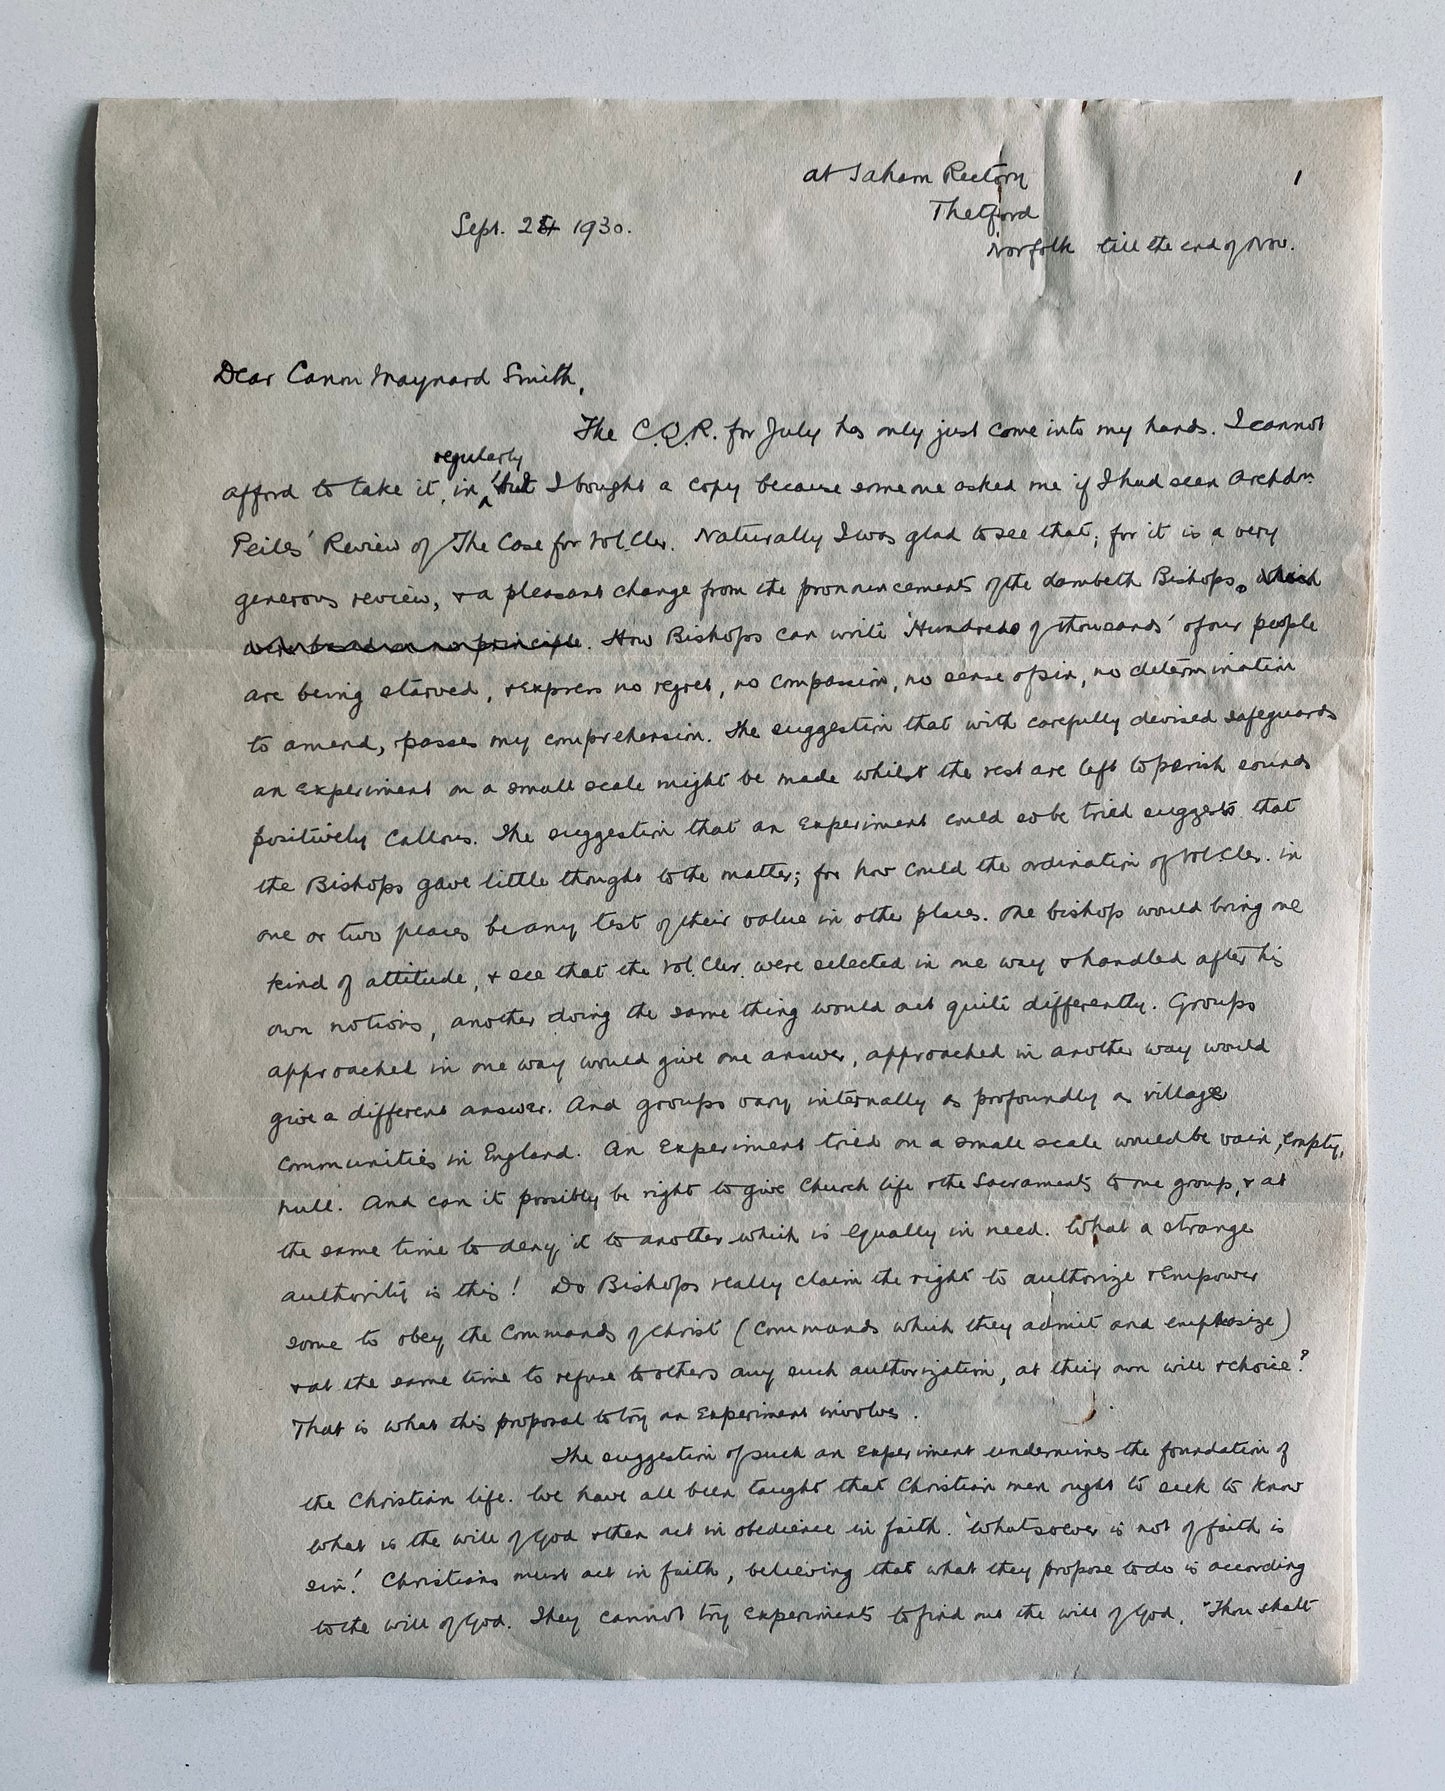 at Saham Rectory
1
Thetford
Sept. 24 1930.
Norfolk till the end of Nov.
Dear Canon Maynard Smith,
The C.Q.R. for July has only just come into my hands. I cannot
regularly
afford to take it in, but I bought a copy because someone asked me if I had seen Archdn.
Peiles' Review of The Case for Vol. Cler. Naturally I was glad to see that; for it is a very
generous review, & a pleasant change from the pronouncements of the Lambeth Bishops. which
were based on no principle. How Bishops can write 'Hundreds of thousands' of our people
are being starved, & express no regret, no compassion, no sense of sin, no determination
to amend, passes my comprehension. The suggestion that with carefully devised safeguards
an experiment on a small scale might be made whilst the rest are left to perish sounds
positively callous. The suggestion that an experiment could so be tried suggests that
the Bishops gave little thought to the matter; for how could the ordination of Vol. Cler. in
one or two places be any test of their value in other places. One bishop would bring one
kind of attitude, & see that the Vol. Cler. were selected in one way & handled after his
own notions, another doing the same thing would act quite differently. Groups
approached in one way would give one answer, approached in another way would
give a different answer. And groups vary internally as profoundly as village
communities in England. An experiment tried on a small scale would be vain, empty,
null. And can it possibly be right to give Church life & the Sacraments to one group, & at
the same time to deny it to another which is equally in need. What a strange
authority is this! Do Bishops really claim the right to authorize & empower
some to obey the Commands of Christ (commands which they admit and emphasize)
& at the same time to refuse to others any such authorization, at their own will & choice?
That is what this proposal to try an experiment involves.
The suggestion of such an experiment undermines the foundation of
the Christian life. We have all been taught that Christian men ought to seek to know
what is the will of God & then act in obedience in faith. 'Whatsoever is not of faith is
sin!' Christians must act in faith, believing that what they propose to do is according
to the will of God. They cannot try experiments to find out the will of God. "Thou shalt